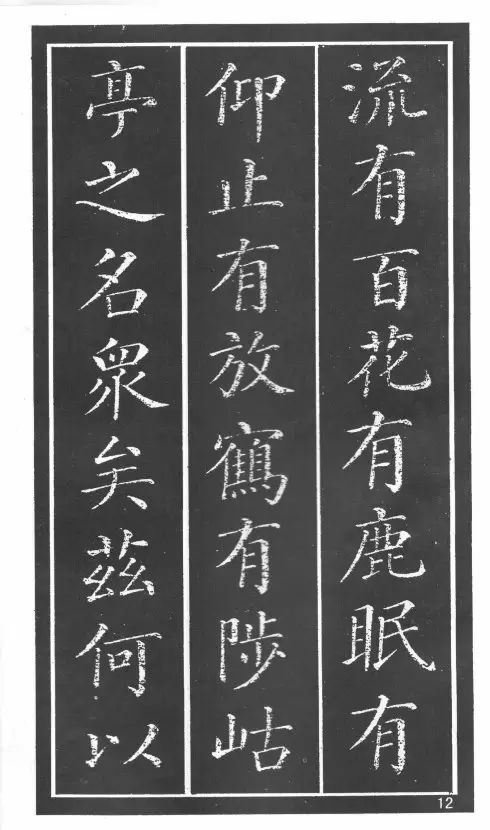 流有百花有鹿眠有
仰止有放鶴有陟岵
亭之名眾矣茲何以
12